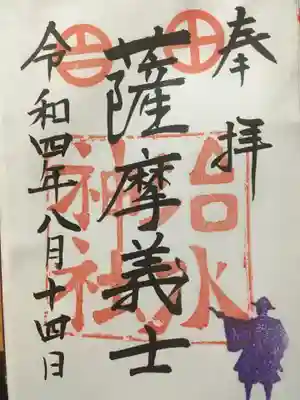 奉拝
薩摩義士
令和四年八月十四日
治水
神社